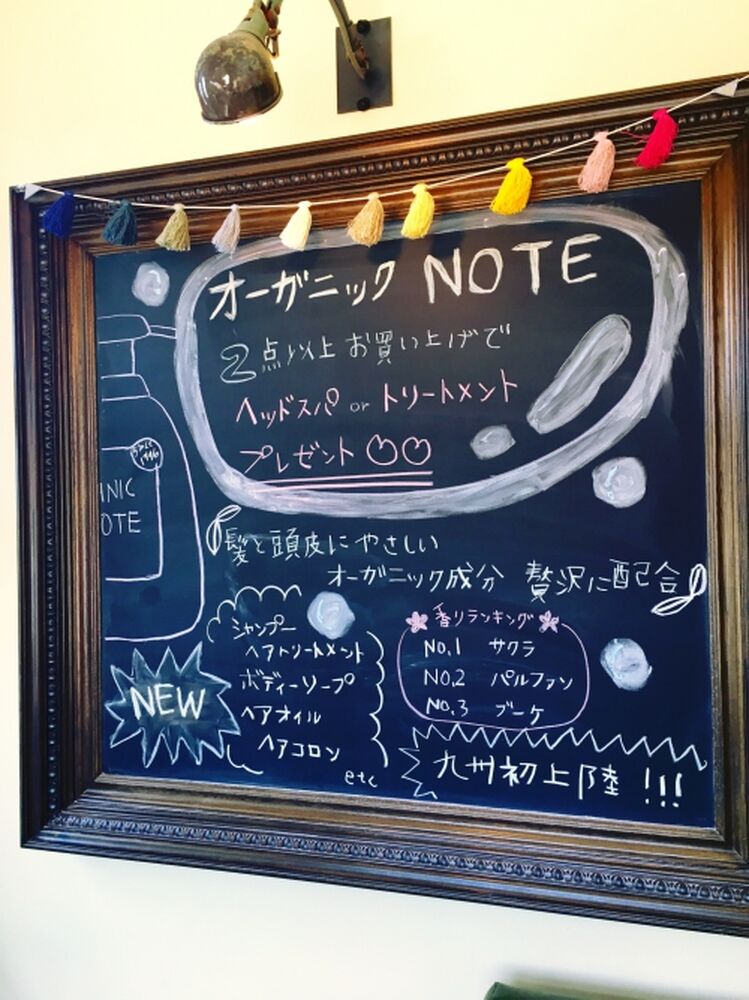 オーガニック NOTE
2点以上お買い上げで
ヘッドスパ or トリートメント
プレゼント
NIC
OTE
髪と頭皮にやさしい
オーガニック成分 贅沢に配合
シャンプー
ヘアトリートメント
ボディーソープ
ヘアオイル
ヘアコロン
etc
NEW
香りランキング
NO.1 サクラ
NO.2 パルファン
NO.3 ブーケ
九州初上陸!!!